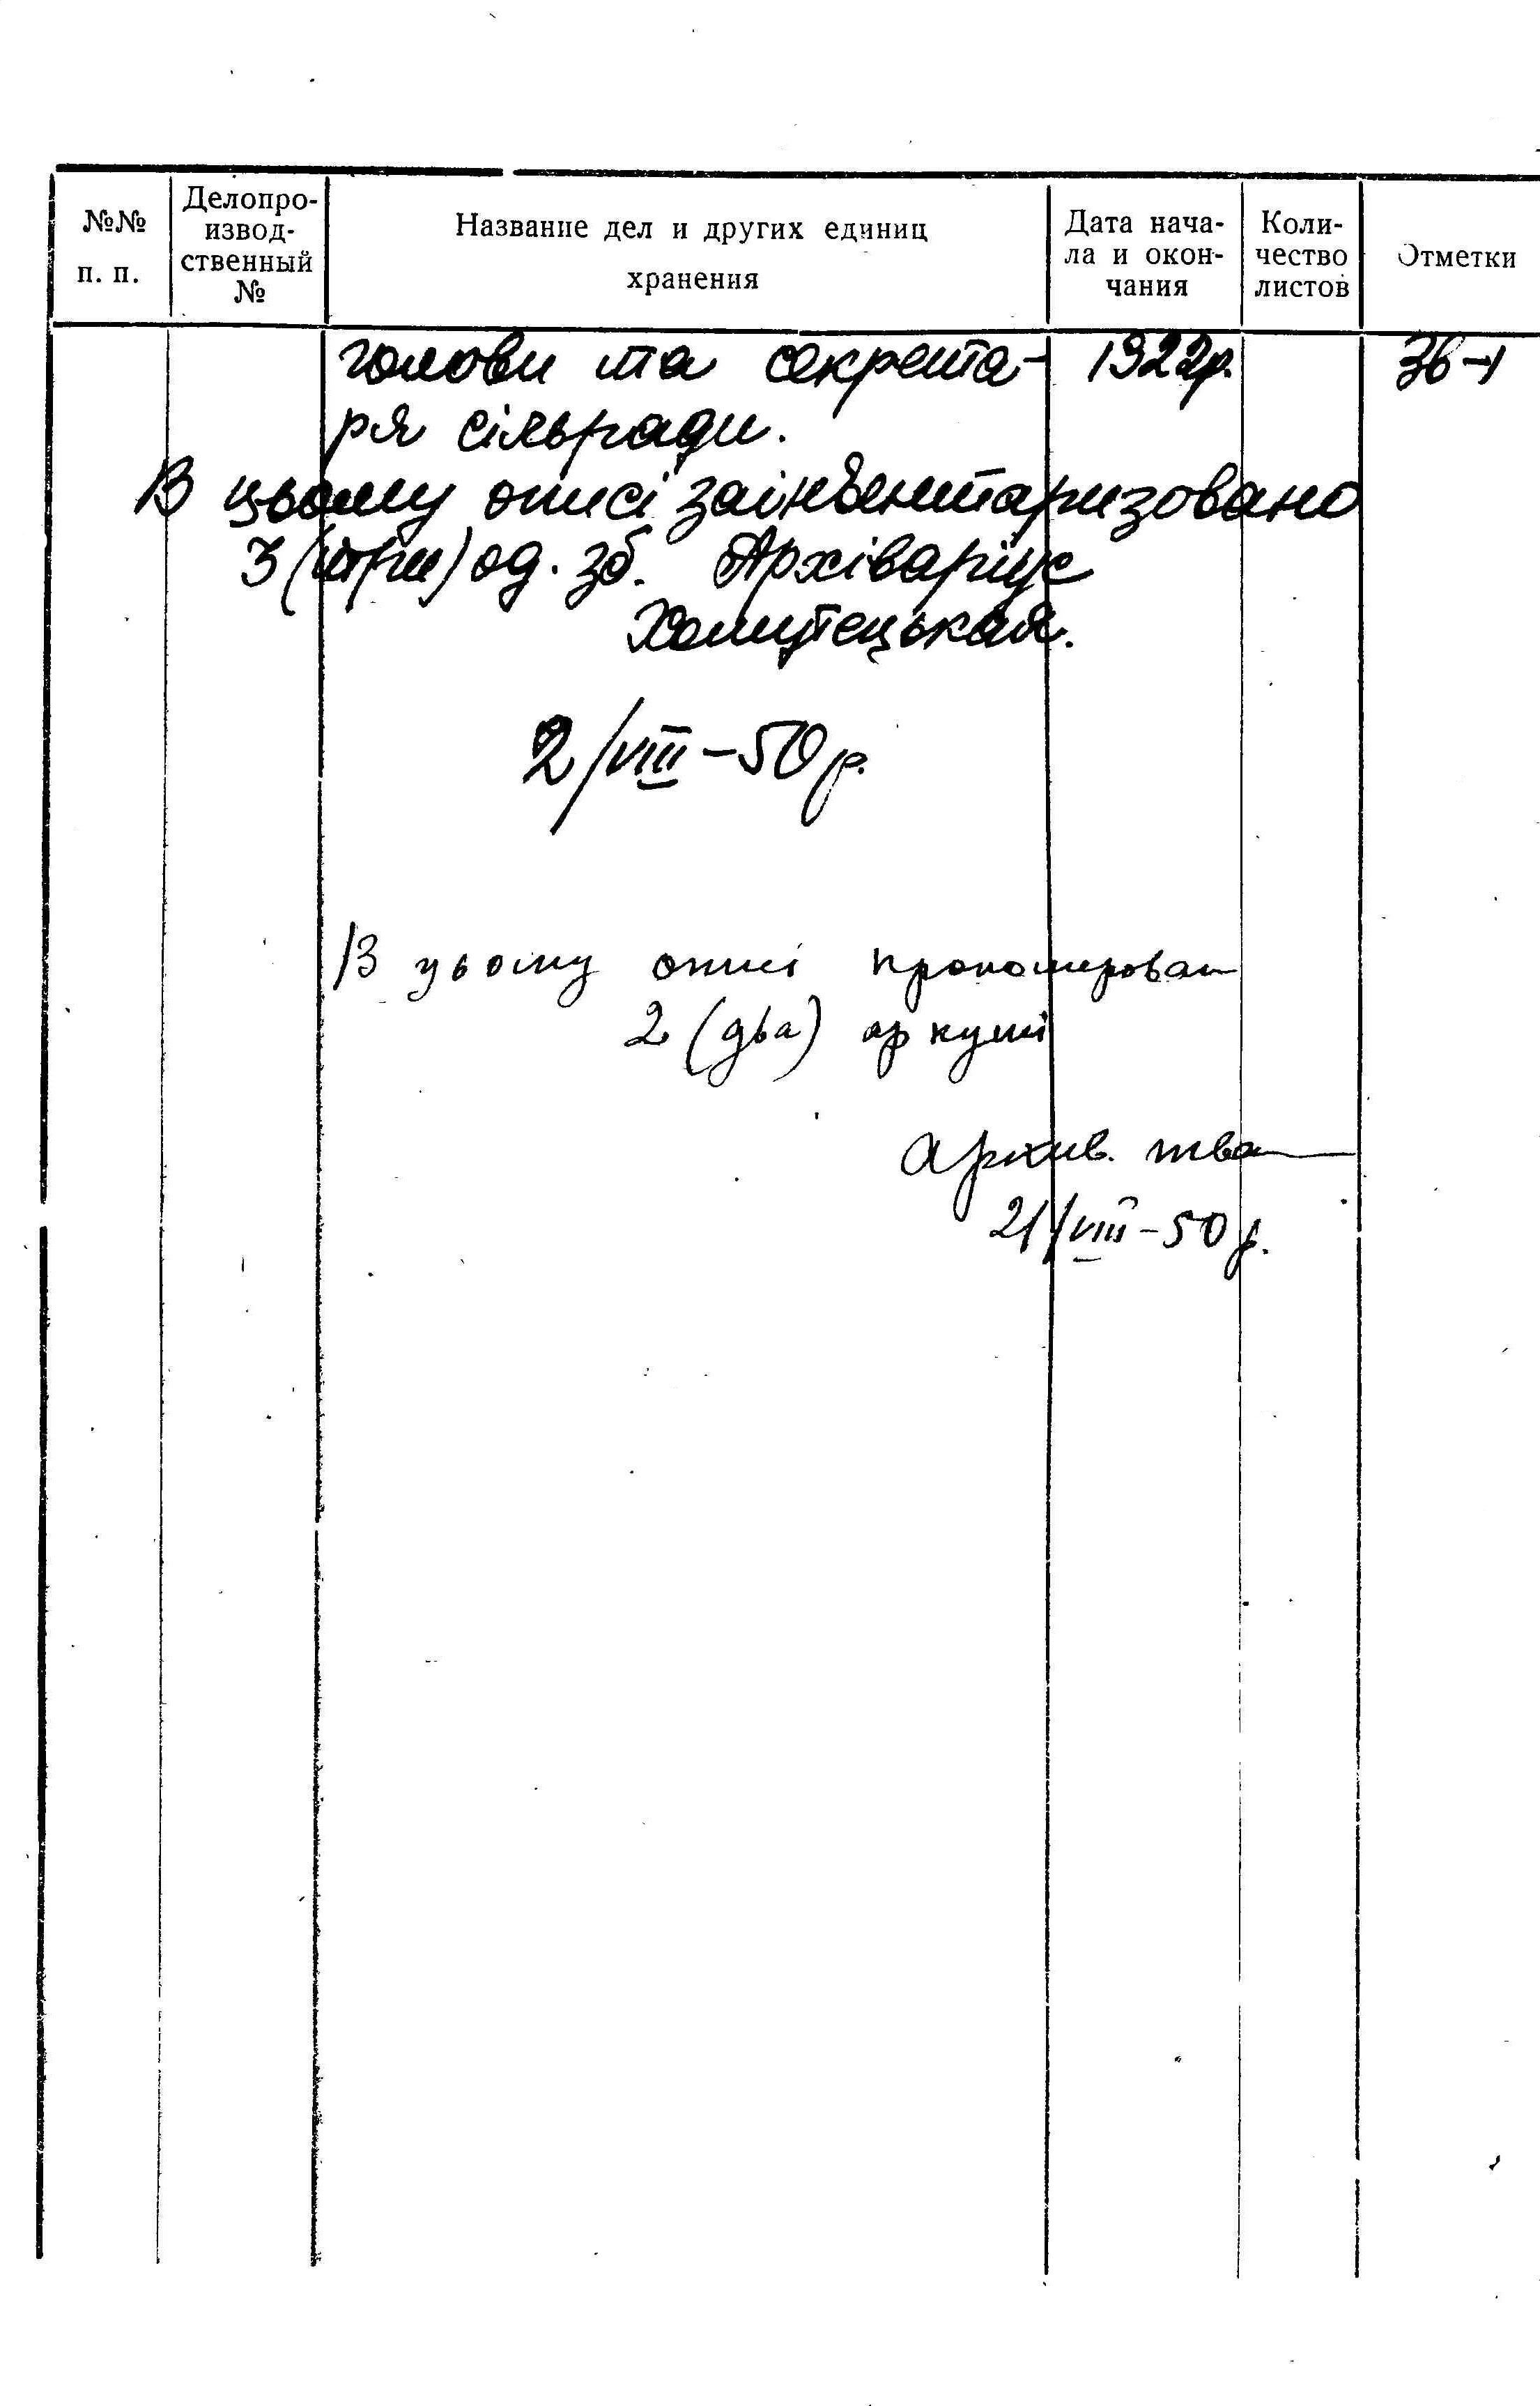 №№ п. п.
Делопро-
извод-
ственный
№
Название дел и других единиц
хранения
Дата нача-
ла и окон-
чания
Коли-
чество
листов
Отметки
голови та секрета- 1922р.
ря сільради.
В цьому описі заінвентаризовано
3 (три) од. зб. Архіваріус
Хомутецькая.
2/VIII-50р.
В цьому описі
2 (два) аркуші
Архив.
21/VIII-50р.